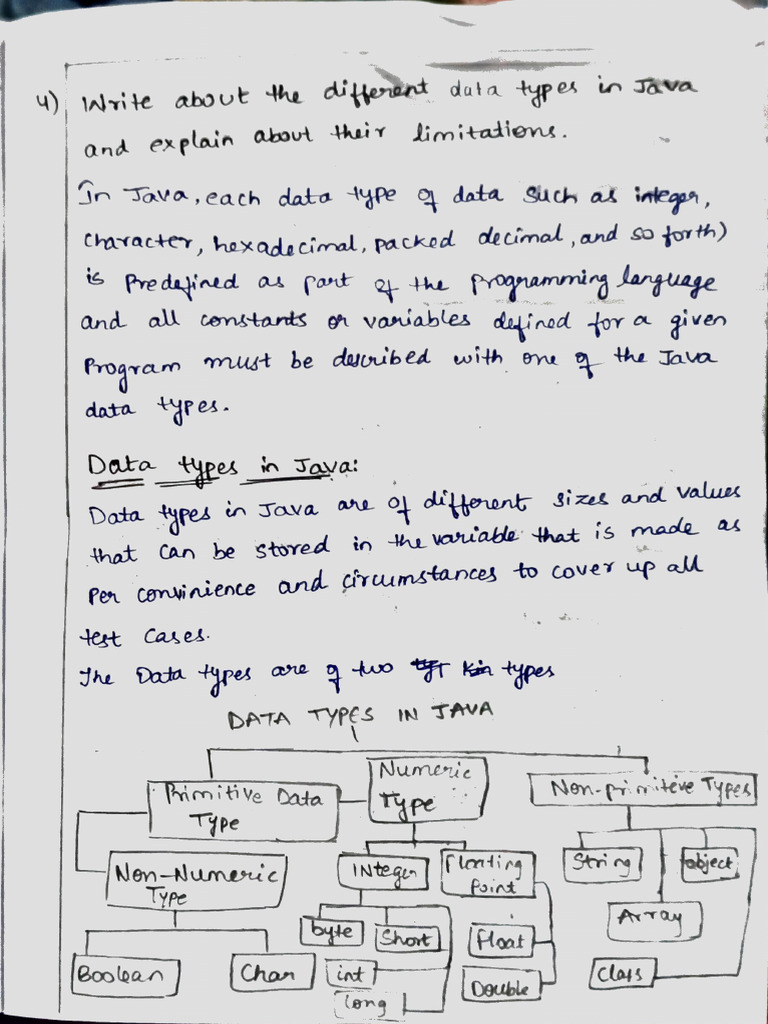 4) Write about the different data types in Java
and explain about their limitations.
In Java, each data type of data such as integer,
character, hexadecimal, packed decimal, and so forth)
is Predefined as part of the programming language
and all constants or variables defined for a given
Program must be described with one of the Java
data types.
Data types in Java:
Data types in Java are of different sizes and values
that can be stored in the variable that is made as
Per convinience and circumstances to cover up all
test cases.
The Data types are of two types
DATA TYPES IN JAVA
Primitive Data
Type
Numeric
Type
Non-primitive Types
Non-Numeric
Type
INteger
Floating
Point
String
object
Array
byte
Short
Float
Boolean
Char
int
Double
Class
long